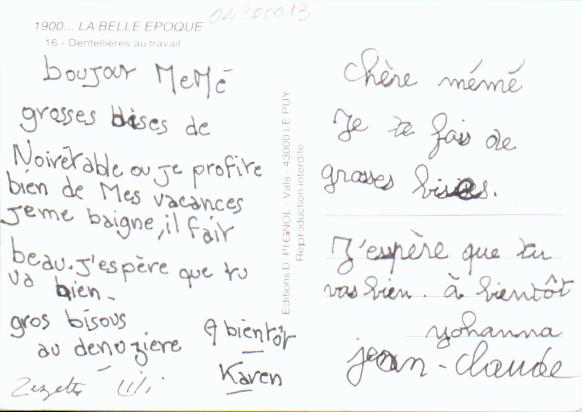 04200013
1900... LA BELLE EPOQUE
16.- Dentellières au travail
boujour MeMé
grosses bises de
Noirétable ou je profite
bien de Mes vacances
jeme baigne, il fair
beau. j'espère que tu
va bien.
gros bisous
au denozière
A bientôt
Karen
Zezette Lili
Editions D. PIGNOL - Vals - 43000 LE PUY
Reproduction interdite
chère mémé
Je te fais de
grasses bises.
J'espère que tu
vas bien. à bientôt
yohanna
jean-claude